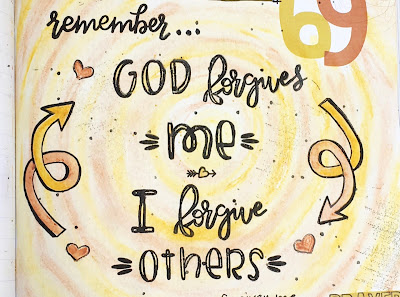 remember...:
69
GOD forgives
me
I forgive
others
PRAYER